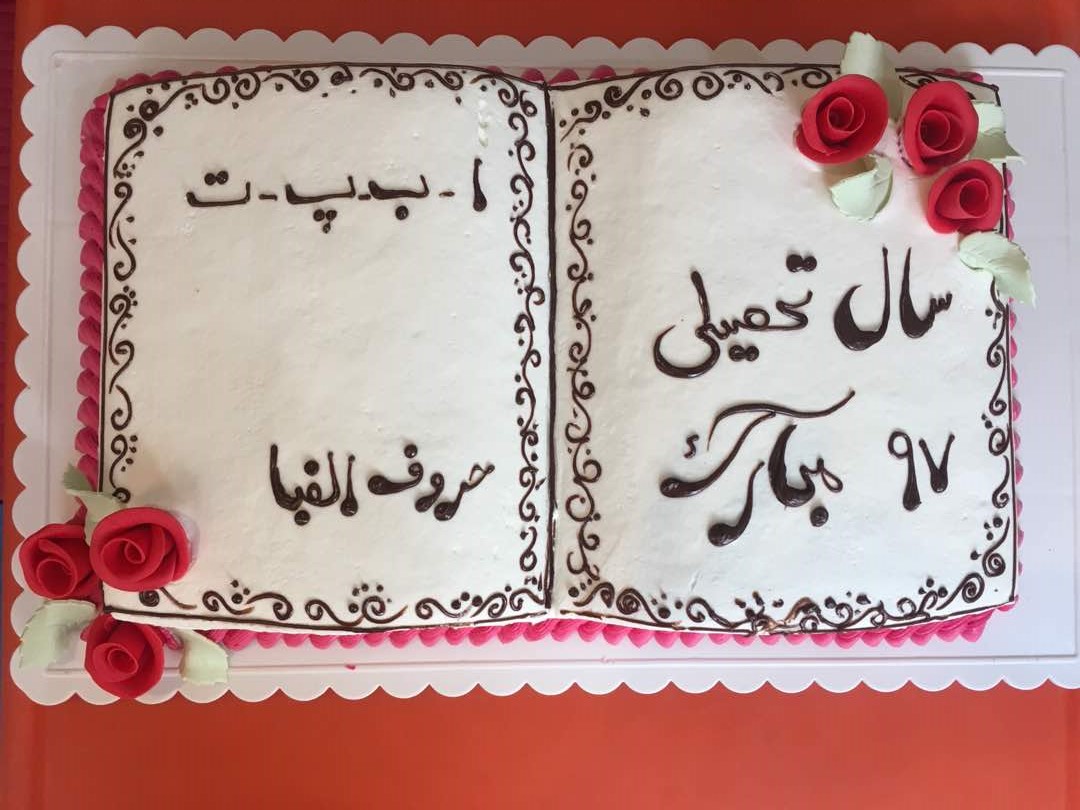 سال تحصیلی
۹۷ مبارک
ا-ب-پ-ت
حروف الفبا